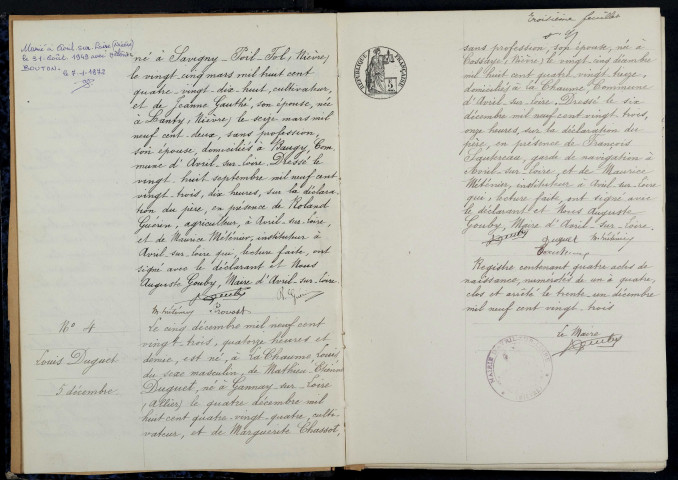 Marié à
le 31 Août 1949 avec
BOUTON.
né à Savigny-Poil-Fol, Nièvre,
le vingt cinq mars mil huit cent
quatre-vingt-dix-huit, cultivateur,
et de Jeanne Gauthé, son épouse, née
à Lanty, Nièvre, le seize mars mil
neuf cent deux, sans profession,
son épouse, domiciliés à Baugy, Com
mune d'Avril-sur-Loire. Dressé le
vingt-huit septembre mil neuf cent-
vingt-trois, dix heures, sur la déclara-
tion du père, en présence de Roland
Guérin, agriculteur, à Avril-sur-Loire,
et de Maurice Méténier, instituteur à
Avril-sur-Loire qui, lecture faite, ont
signé avec le déclarant et Nous
Auguste Gouby, Maire d'Avril-sur-Loire.
No 4
Louis Duguet
5 décembre
Le cinq décembre mil neuf cent
vingt-trois, quatorze heures et
demie, est né, à La Chaume, Louis,
du sexe masculin, de Mathieu Etienne
Duguet, né à Gannay-sur-Loire
(Allier) le quatre décembre mil
huit cent quatre-vingt-quatre, culti-
vateur, et de Marguerite Chassot,
Troisième feuillet
RÉPUBLIQUE FRANÇAISE
sans profession, son épouse, née à
(Nièvre) le vingt-cinq
mil huit cent quatre vingt treize,
domiciliés à La Chaume, Commune
d'Avril-sur-Loire. Dressé le six
décembre mil neuf cent vingt-trois,
onze heures, sur la déclaration du
père, en présence de François
garde de navigation à
Avril-sur-Loire, et de Maurice
Méténier, instituteur à Avril-sur-Loire
qui, lecture faite, ont signé avec
le déclarant et Nous Auguste
Gouby, Maire d'Avril-sur-Loire.
Duguet
Registre contenant quatre actes de
naissance, numérotés de un à quatre,
clos et arrêté le trente un décembre
mil neuf cent vingt-trois
Le Maire